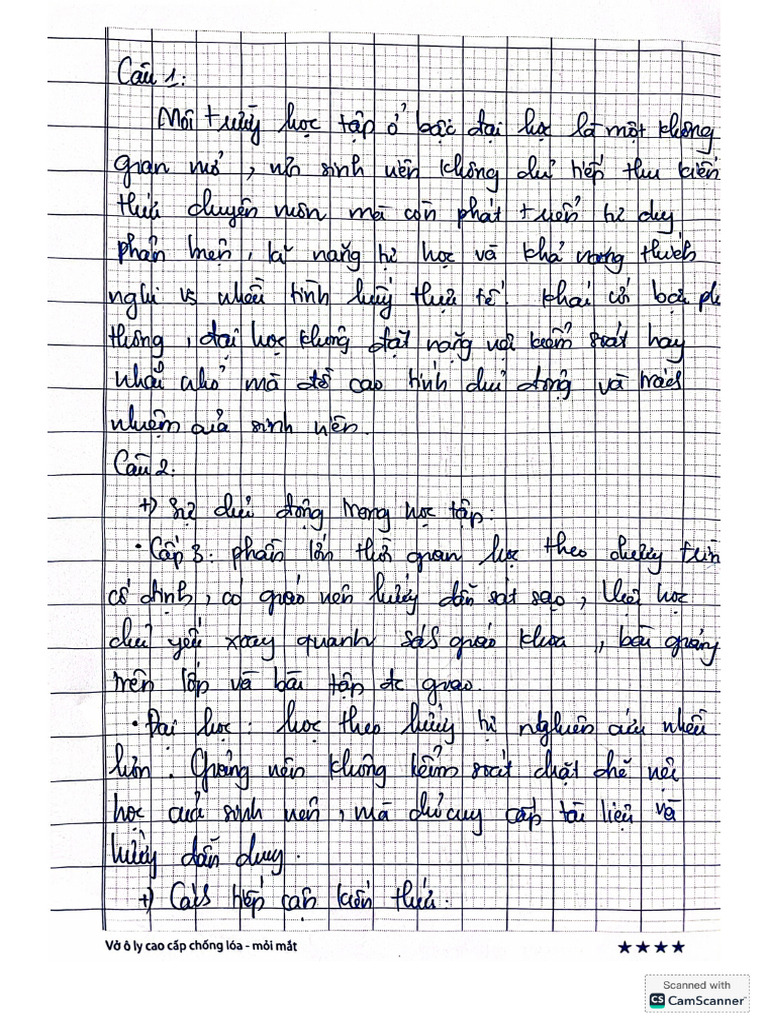 Câu 1:
Môi trường học tập ở bậc đại học là một không
gian mở, nơi sinh viên không chỉ tiếp thu kiến
thức chuyên môn mà còn phát triển tư duy
phản biện, kĩ năng tự học và khả năng thích
nghi vs nhiều tình huống thực tế. Khác với bậc ph
thông, đại học không đặt nặng việc kiểm soát hay
nhắc nhở mà đề cao tính chủ động và trách
nhiệm của sinh viên.
Câu 2:
+) Sự chủ động trong học tập:
• Cấp 3: phần lớn thời gian học theo chương trình
cố định, có giáo viên hướng dẫn sát sao, việc học
chủ yếu xoay quanh sách giáo khoa, bài giảng
trên lớp và bài tập đc giao.
• Đại học: học theo hướng tự nghiên cứu nhiều
hơn. Giảng viên không kiểm soát chặt chẽ việc
học của sinh viên, mà chỉ cung cấp tài liệu và
hướng dẫn chung.
+) Cách tiếp cận kiến thức:
Vở ô ly cao cấp chống lóa - mỏi mắt
Scanned with
CS CamScanner